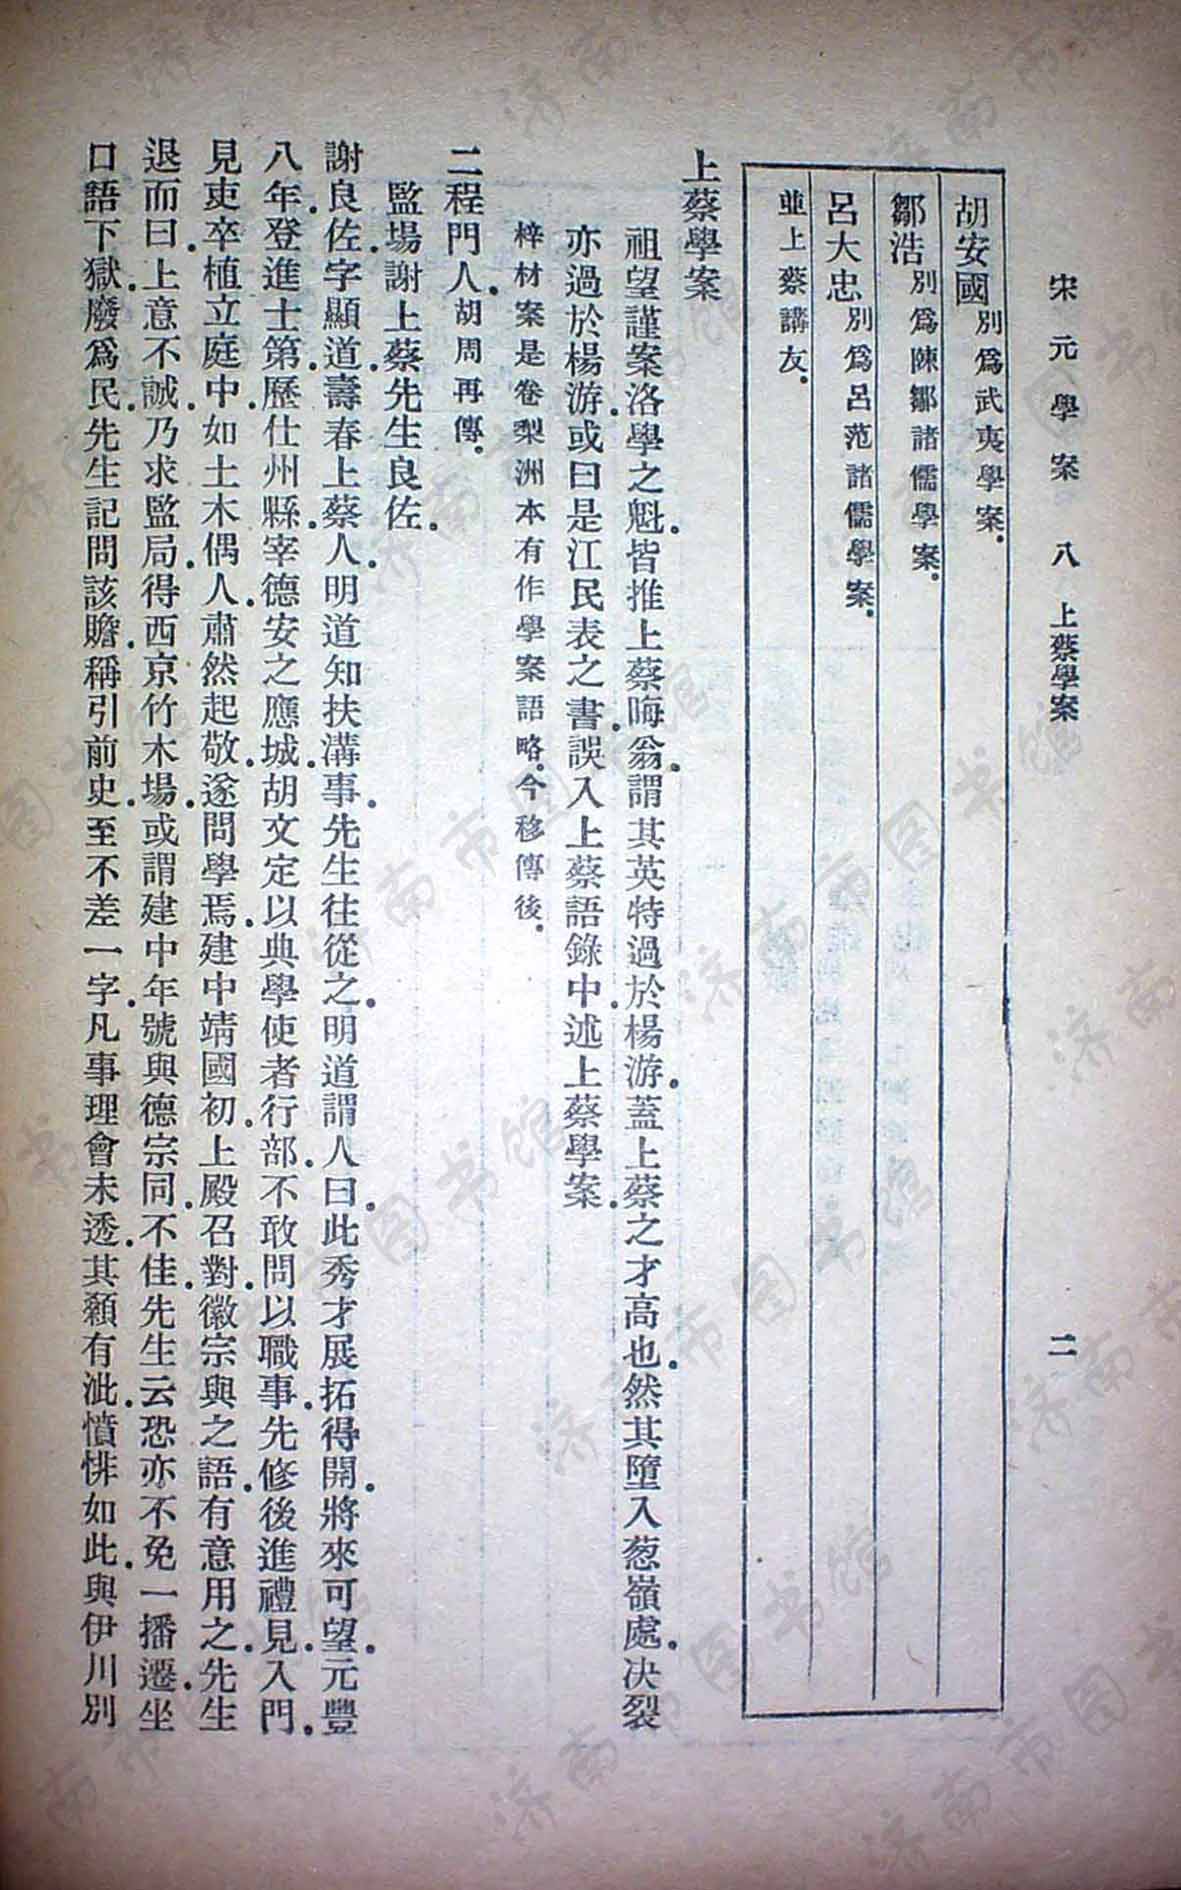 宋元學案 八 上蔡學案 二
胡安國別爲武夷學案.
鄒浩別爲陳鄒諸儒學案.
呂大忠別爲呂范諸儒學案.
並上蔡講友.
上蔡學案
祖望謹案洛學之魁.皆推上蔡.晦翁謂其英特過於楊游.蓋上蔡之才高也.然其墮入葱嶺處.決裂
亦過於楊游.或曰是江民表之書.誤入上蔡語錄中.述上蔡學案.
梓材案是卷梨洲本有作學案語略.今移傳後.
二程門人.胡周再傳.
監場謝上蔡先生良佐.
謝良佐.字顯道.壽春上蔡人.明道知扶溝事.先生往從之.明道謂人曰.此秀才展拓得開.將來可望.元豐
八年.登進士第.歷仕州縣.宰德安之應城.胡文定以典學使者行部.不敢問以職事.先修後進禮見.入門.
見吏卒植立庭中.如土木偶人.肅然起敬.遂問學焉.建中靖國初.上殿召對.徽宗與之語.有意用之.先生
退而曰.上意不誠.乃求監局.得西京竹木場.或謂建中年號與德宗同.不佳.先生云恐亦不免一播遷.坐
口語下獄.廢爲民.先生記問該贍.稱引前史.至不差一字.凡事理會未透.其顙有泚.憤悱如此.與伊川別
济南市图书馆